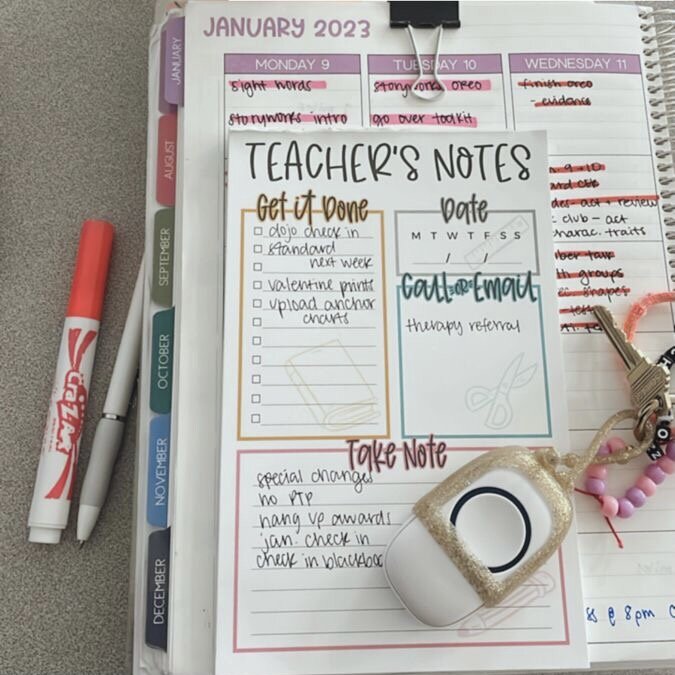 JANUARY 2023
MONDAY 9
TUESDAY 10
WEDNESDAY 11
sight words
storyworks oreo
finish oreo
- evidence
storyworks intro
go over toolkit
JANUARY
AUGUST
SEPTEMBER
OCTOBER
NOVEMBER
DECEMBER
TEACHER'S NOTES
Get it Done
dojo check in
standard
next week
valentine prints
upload anchor
charts
Date
M T W T F S S
/ /
Call or Email
therapy referral
Take Note
special changes
no PTP
hang up awards
jan. check in
check in blackboa
9-10
act + review
club - act
charac. traits
groups
shapes
@ 8pm
CraZArt